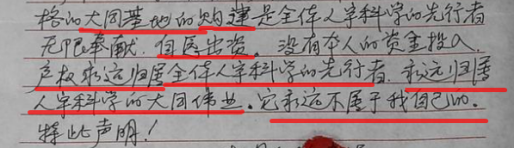 格的大同基地的购建是全体人宇科学的先行者
无限奉献.自愿出资.没有本人的资金投入.
产权永远归属全体人宇科学的先行者.永远归属
人宇科学的大同伟业.它永远不属于我自己的.
特此声明!